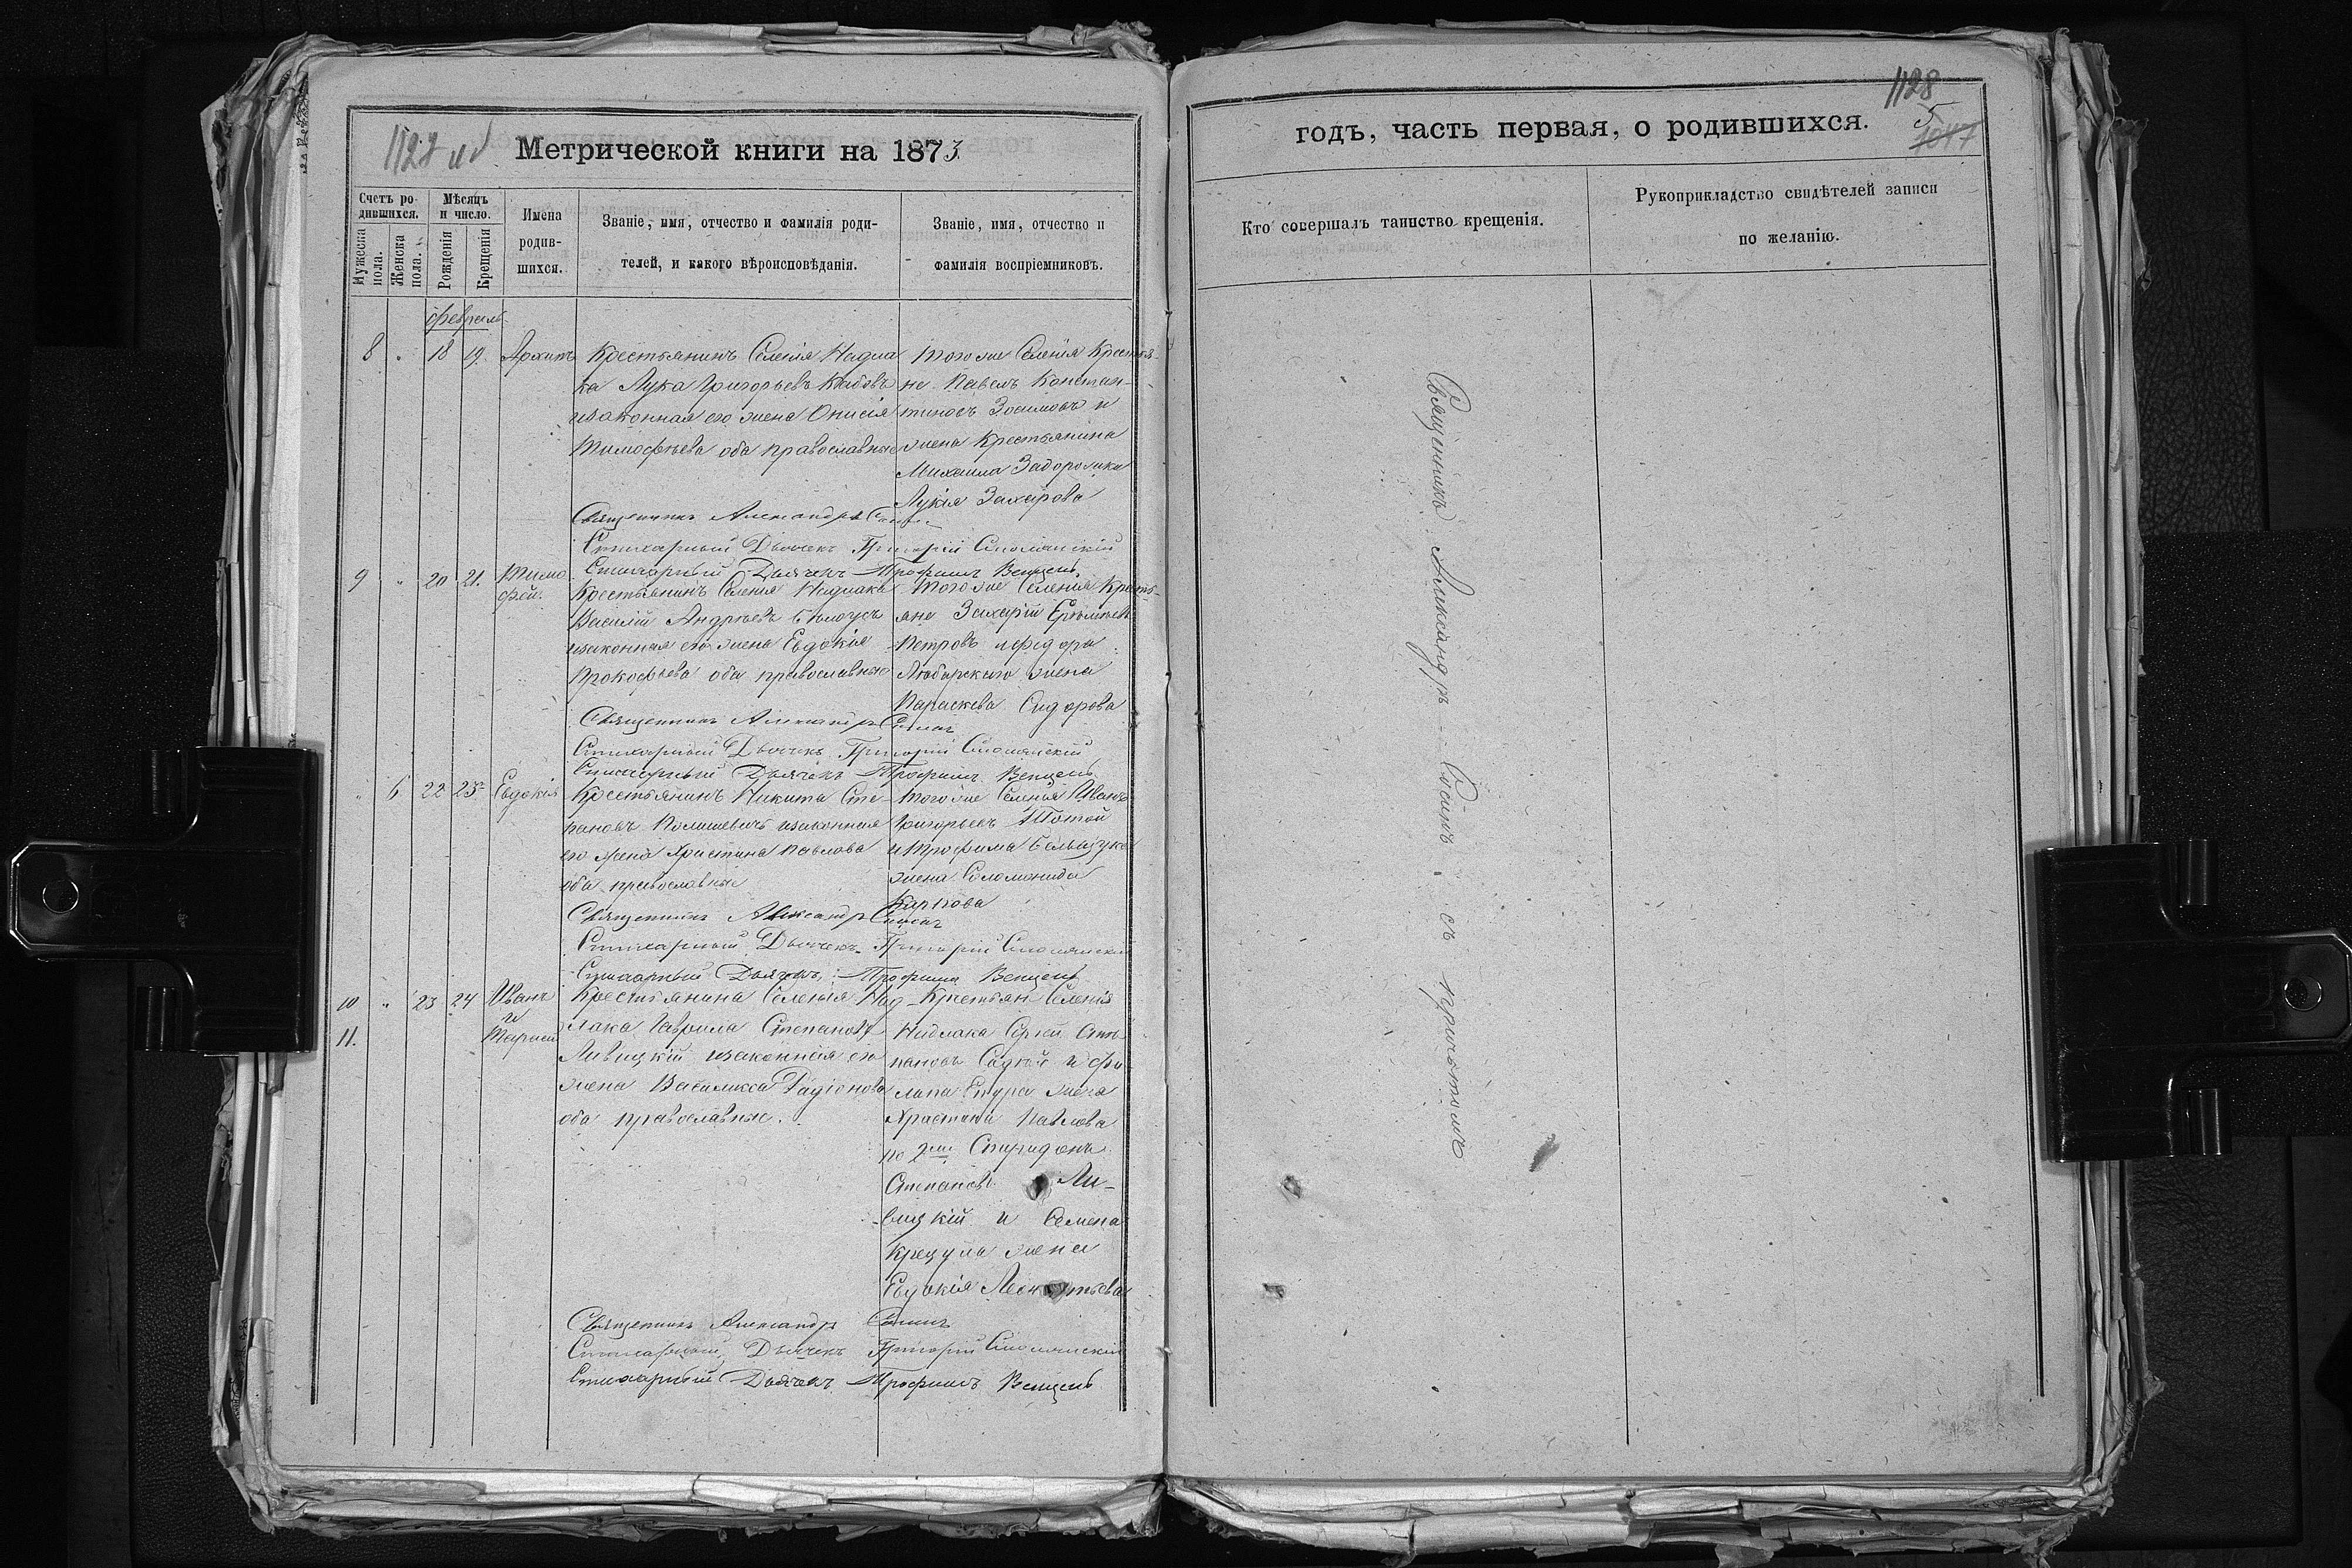 1127 об
Метрической книги на 1873
Счетъ родившихся.
Мужеска пола.
Женска пола.
Мѣсяцъ и число.
Рожденія
Крещенія
Имена родившихся.
Званіе, имя, отчество и фамилія родителей, и какого вѣроисповѣданія.
Званіе, имя, отчество и фамилія воспріемниковъ.
февраль
8 " 18 19 Архипъ
Крестьянинъ Селенія Надла
ка Лука Григорьевъ
изаконная его жена Онисія
Тимофѣева оба православные
Того же Селенія Крестья
не Павелъ Констан-
тиновъ Зосимовъ и
жена Крестьянина
Михаила Задорожна
Лукія Захарова
Священникъ Александръ
Стихарный Дьячекъ Григорій
Стихарный Дьячекъ Трофимъ Венцель
9 " 20 21. Тимо
фей.
Крестьянинъ Селенія Надлака
Василій Андреевъ Бѣлоусъ
изаконная его жена Евдокія
Прокофьева оба православные
Того же Селенія Кресть-
яне Захарій
Петровъ иФедора
Любарскаго жена
Параскева Сидорова
Священникъ Александръ
Стихарный Дьячекъ Григорій
Стихарный Дьячекъ Трофимъ Венцель
" 6 22 23 Евдокія
Крестьянинъ Никита Сте-
пановъ изаконная
его жена Христина Павлова
оба православные
Того же Селенія Иванъ
Григорьевъ
иТрофима
жена Соломонида
Карпова
Священникъ Александръ
Стихарный Дьячекъ Григорій
Стихарный Дьячекъ Трофимъ Венцель
10 " 23 24 Иванъ
и
11. Тарасій
Крестьянина Селенія Над-
лака Гаврила Степановъ
Ливицкій изаконная его
жена Василисса Радіонова
оба православные.
Крестьян Селенія
Надлака Сергей Сте-
пановъ и Фи-
липа жена
Христина Павлова
по 2му Спиридонъ
Степановъ Ли-
вицкій и Семена
Крецула жена
Евдокія Леонтьева
Священникъ Александръ
Стихарный Дьячекъ Григорій
Стихарный Дьячекъ Трофимъ Венцель
1128
5
1047
годъ, часть первая, о родившихся.
Кто совершалъ таинство крещенія.
Рукоприкладство свидѣтелей записи по желанію.
Священникъ Александръ съ причтомъ